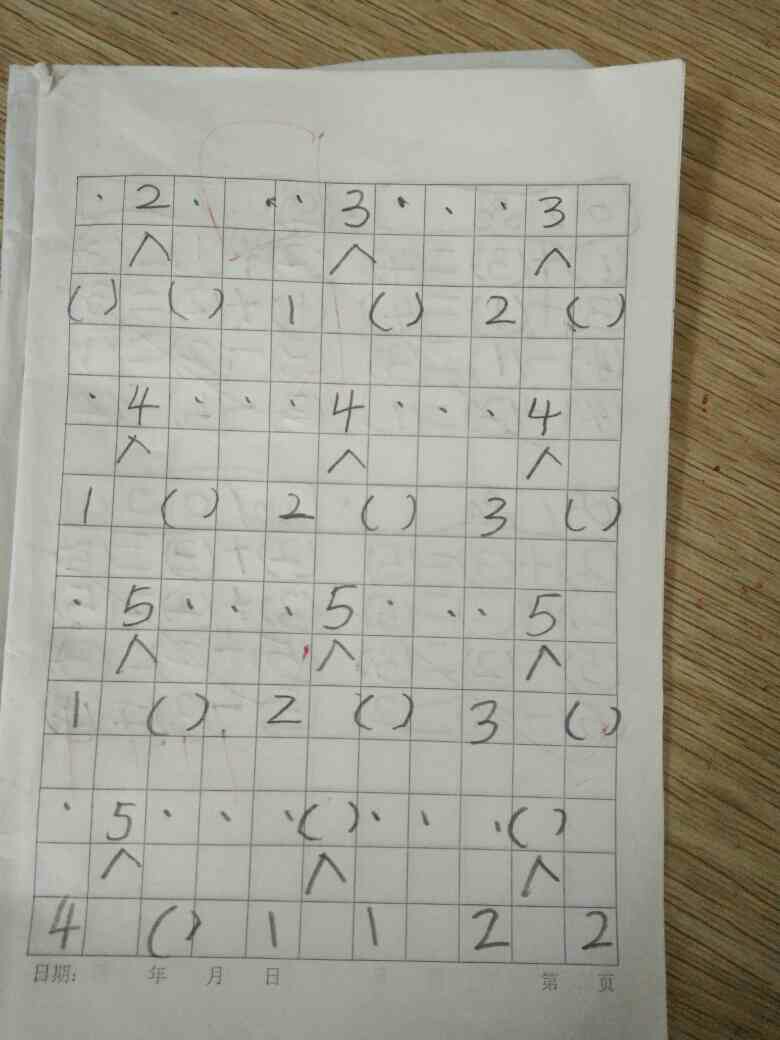 · 2 · · · 3 · · · 3
∧ ∧ ∧
( ) ( ) 1 ( ) 2 ( )
· 4 · · · 4 · · · 4
∧ ∧ ∧
1 ( ) 2 ( ) 3 ( )
· 5 · · · 5 · · · 5
∧ ∧ ∧
1 ( ) 2 ( ) 3 ( )
· 5 · · · ( ) · · · ( )
∧ ∧ ∧
4 ( ) 1 1 2 2
日期: 年 月 日 第 页